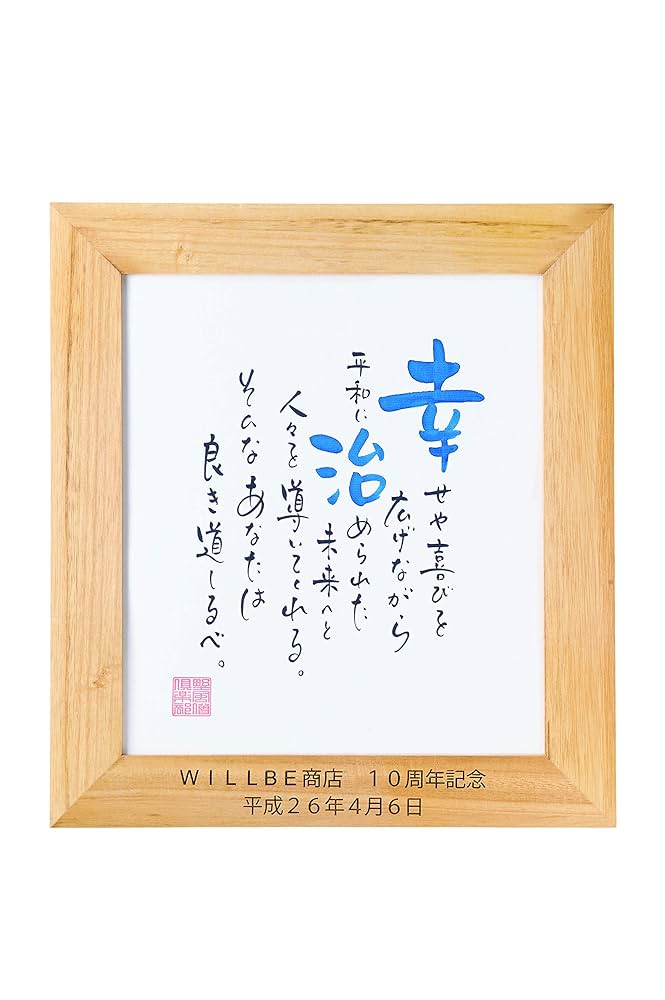 幸せや喜びを
広げながら
平和に治められた
未来へと
人々を導いてくれる。
そんなあなたは
良き道しるべ。
WILLBE商店　10周年記念
平成26年4月6日